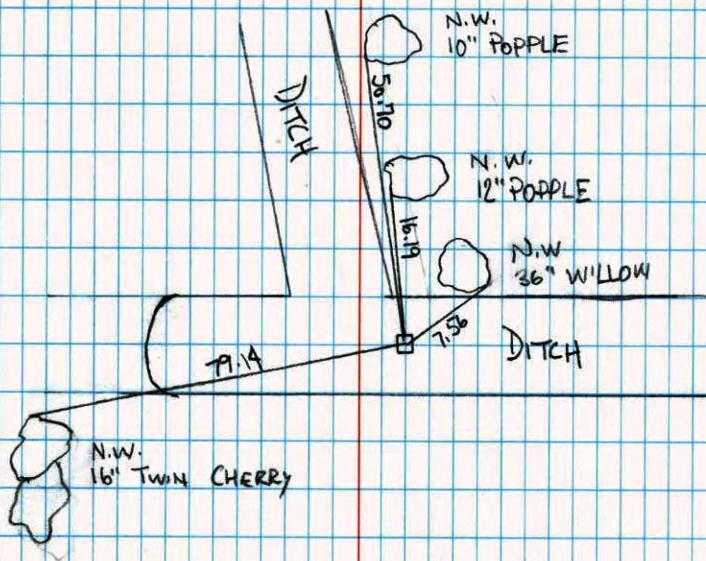 N.W.
10" POPPLE
50.70
DITCH
N.W.
12" POPPLE
16.19
N.W
36" WILLOW
7.56
DITCH
79.14
N.W.
16" TWIN CHERRY